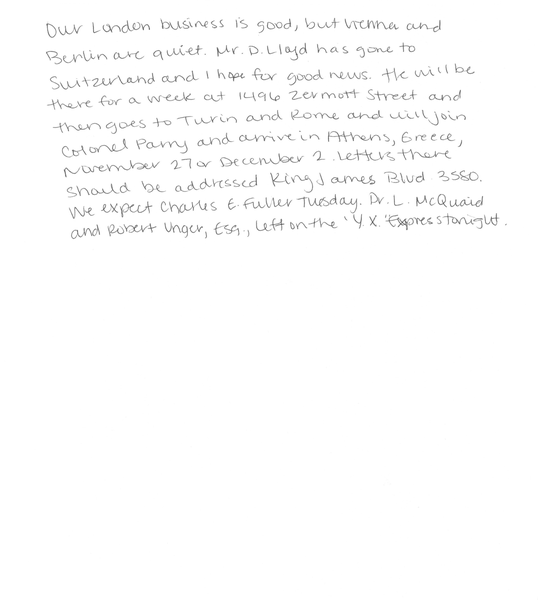 Our London business is good, but Vienna and
Berlin are quiet. Mr. D. Lloyd has gone to
Switzerland and I hope for good news. He will be
there for a week at 1496 Zermott Street and
then goes to Turin and Rome and will join
Colonel Parry and arrive in Athens, Greece,
November 27 or December 2. Letters there
should be addressed King James Blvd 3580.
We expect Charles E. Fuller Tuesday. Dr. L. McQuaid
and Robert Unger, Esq., left on the 'Y.X.' Express tonight.